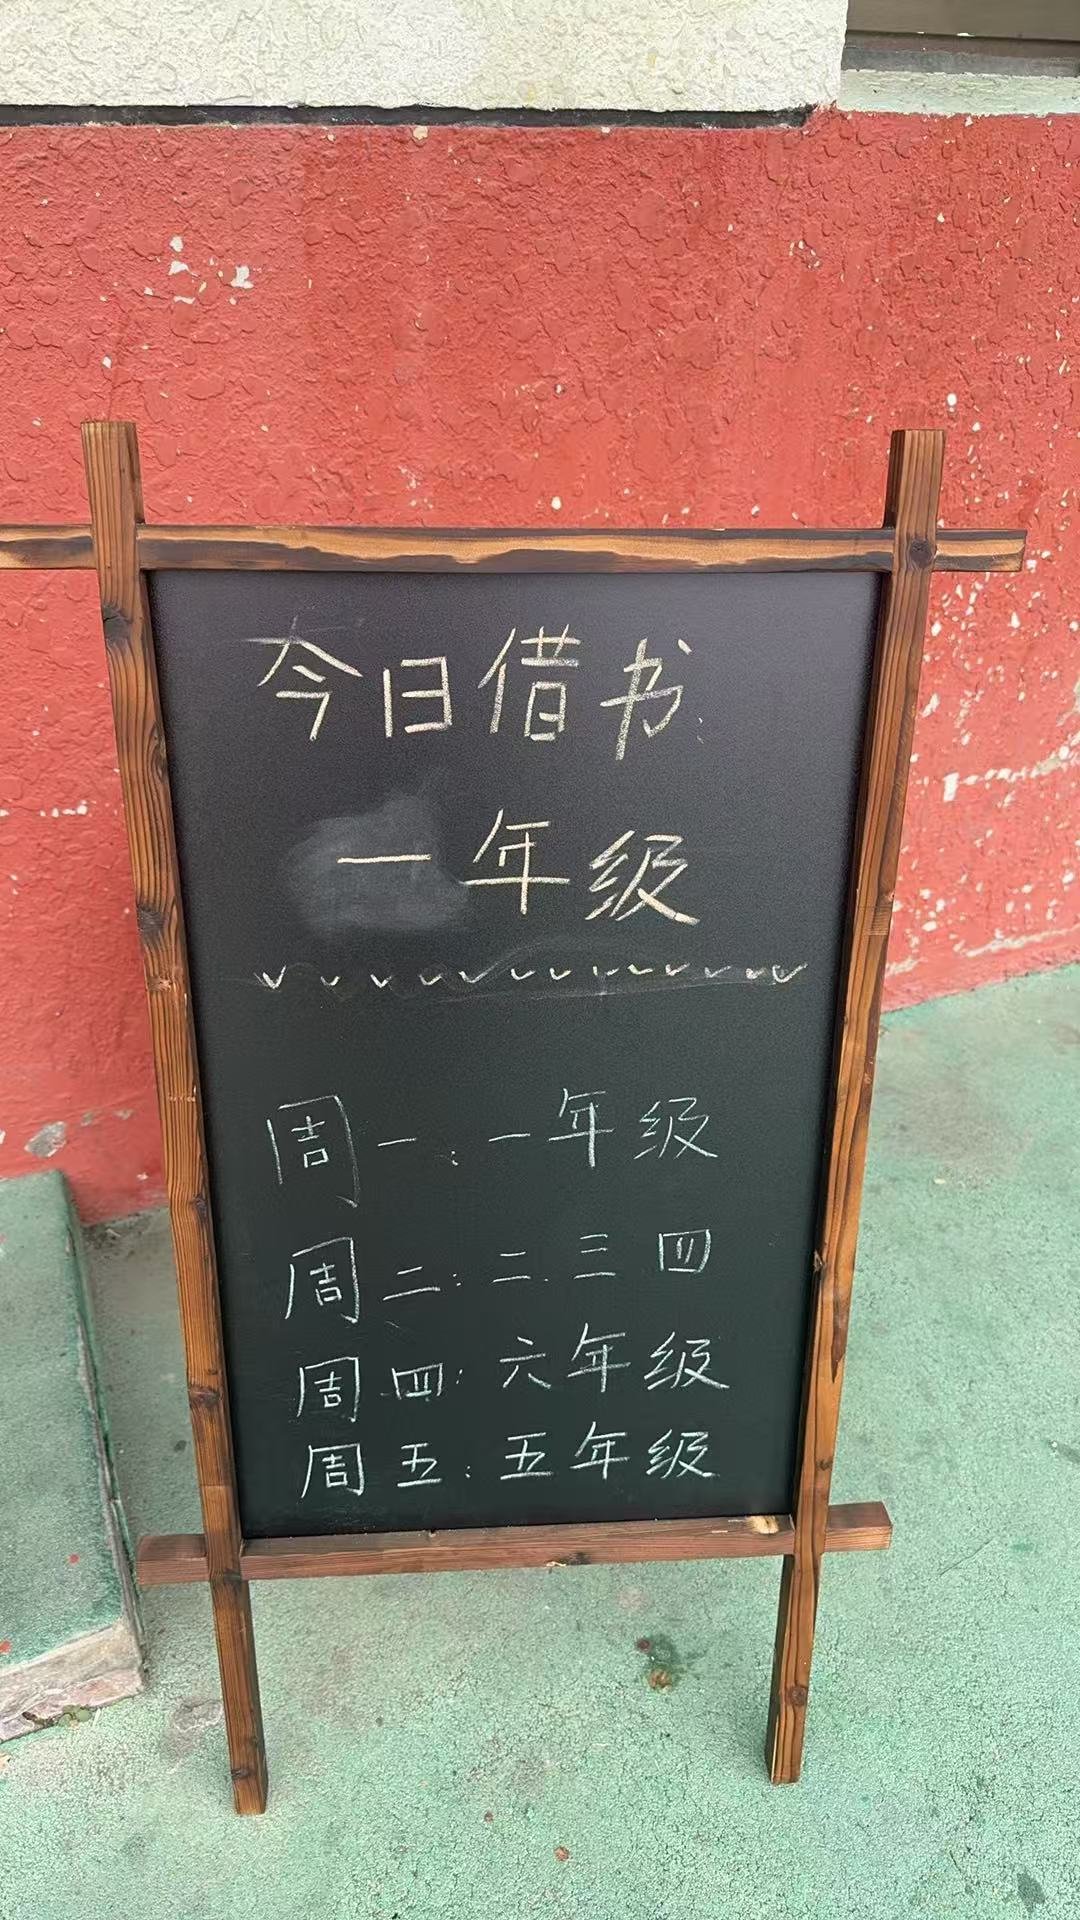 今日借书
一年级
周一:一年级
周二:二.三 四
周四:六年级
周五:五年级